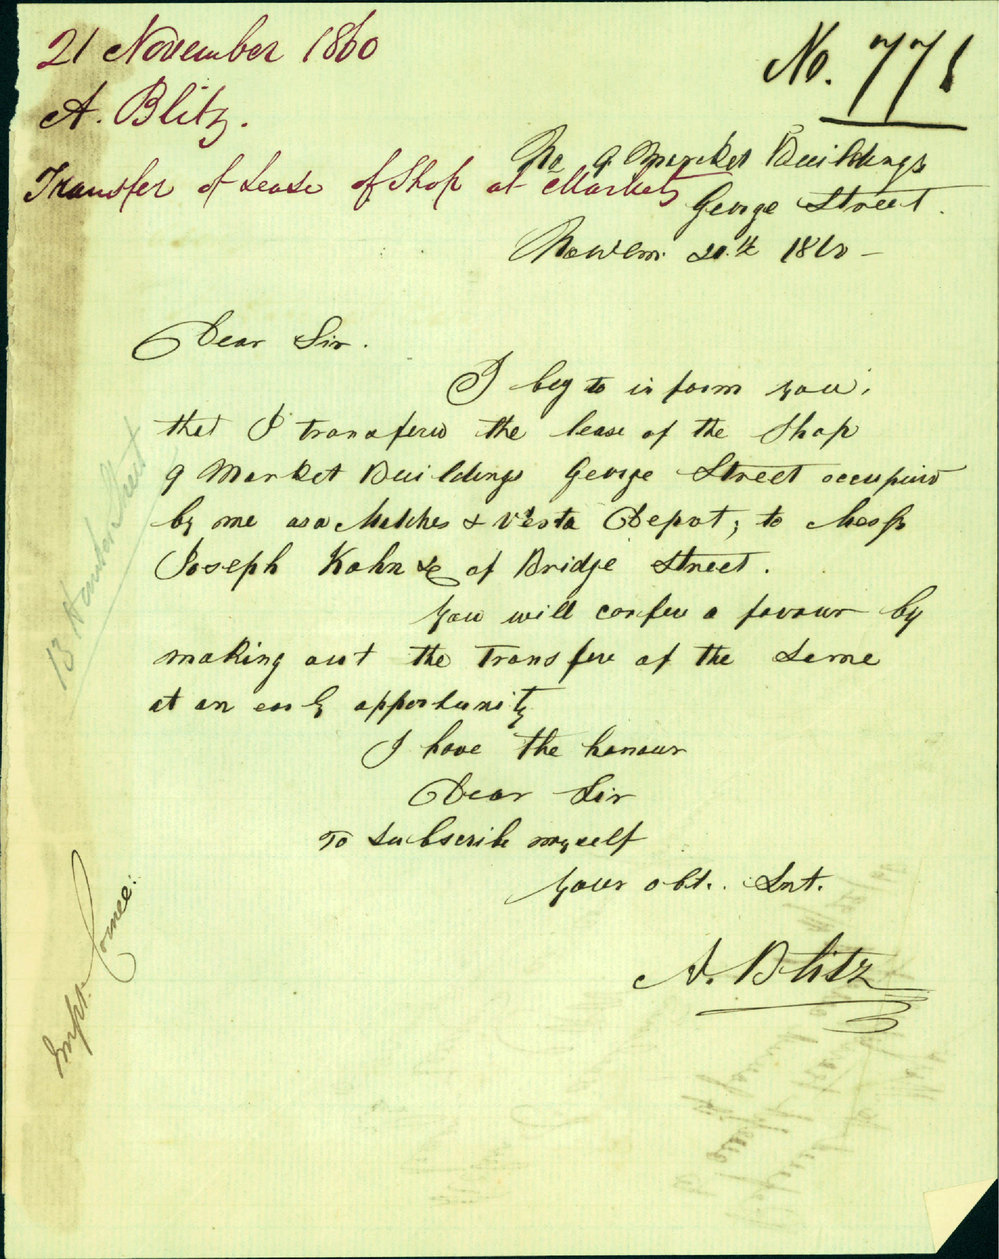 21 November 1860
A. Blitz.
Transfer of Lease of Shop at Markets
No. 771
No 9 Market Buildings
George Street.
Novem. 20.th 1860 -
Dear Sir.
I beg to inform you,
that I transfered the lease of the Shop
9 Market Buildings George Street occupied
by me as a Matches & Vesta Depot; to Messrs
Joseph Kohn & of Bridge Street.
You will confer a favour by
making out the transfere of the Same
at an early opportunity
I have the honour
Dear Sir
To Subscribe myself
your obt. Svt.
A. Blitz
13 Street
Impt. Comee.